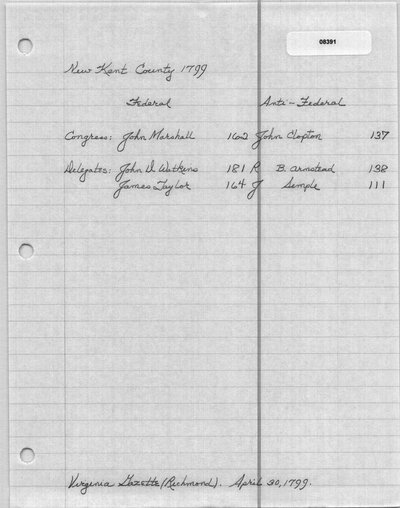 08391
New Kent County 1799
Federal Anti-Federal
Congress: John Marshall 162 John Clopton 137
Delegates: John D Watkins 181 R B. Armstead 138
James Taylor 164 J Semple 111
Virginia Gazette (Richmond). April 30, 1799.